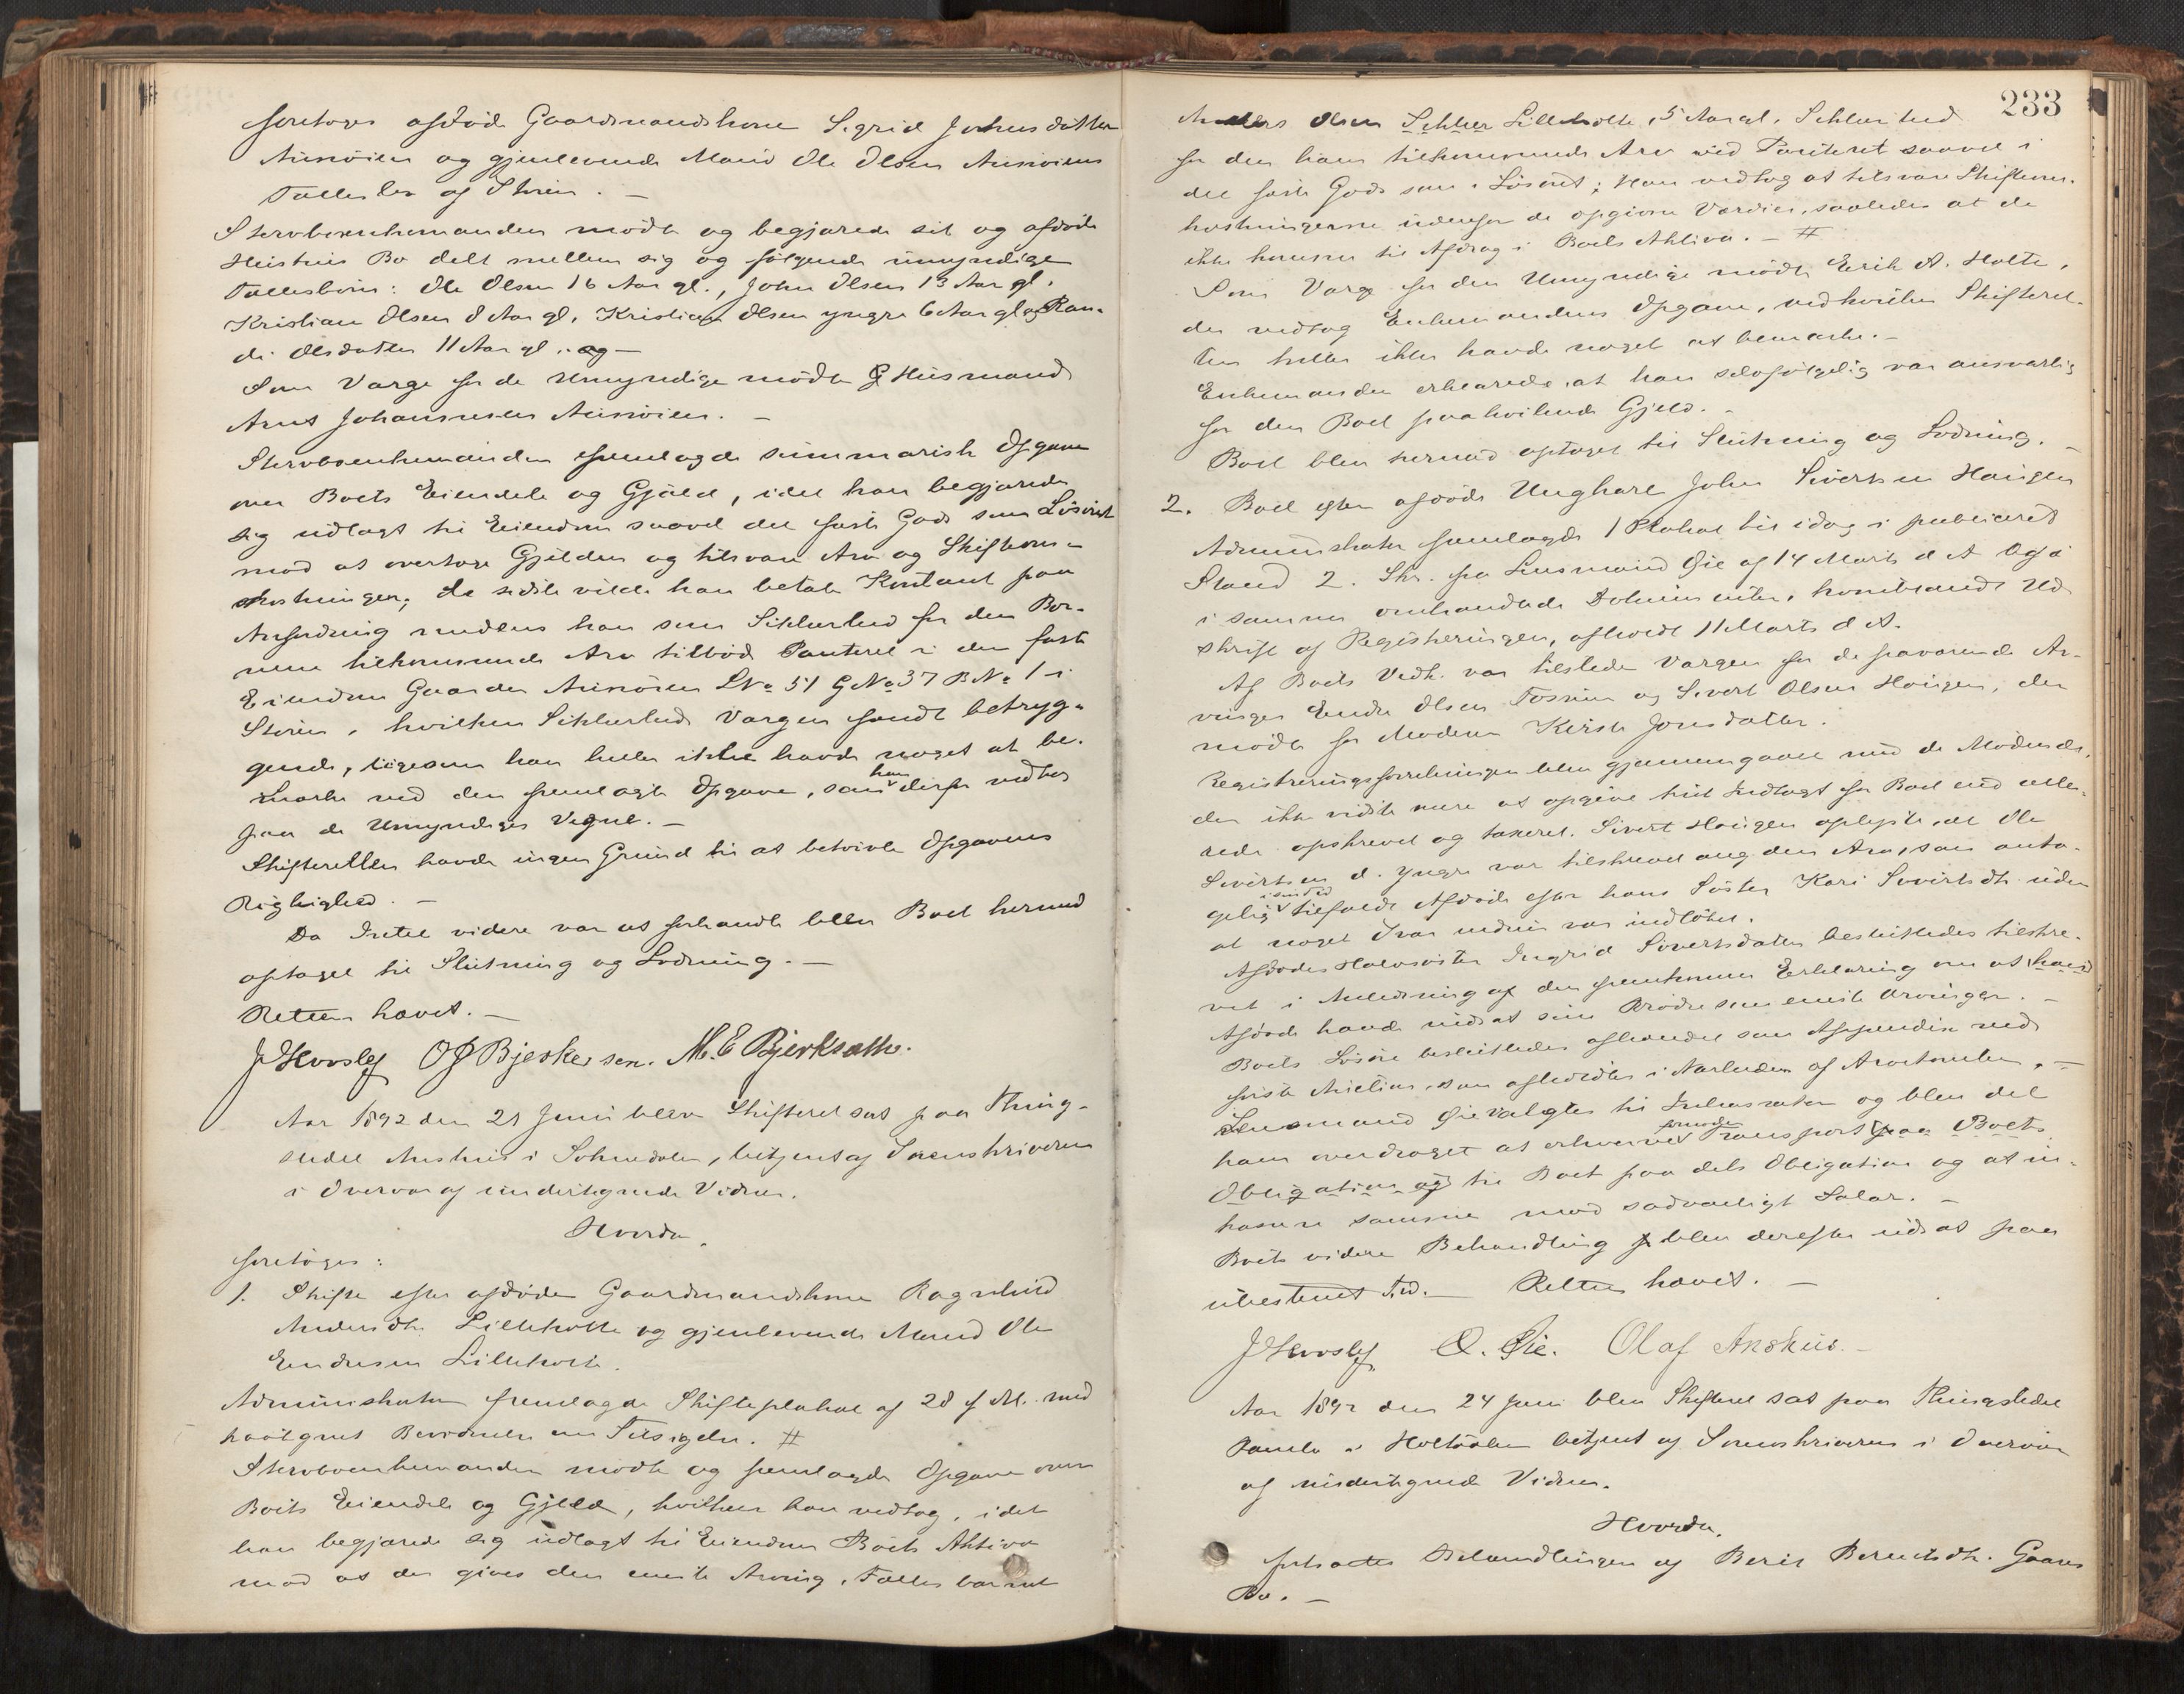 foretoges afdöde Gaardmandskone Sigrid Johnsdatter
Aunöien og gjenlevende Mand Ole Olsen Aunöiens
Fællesbo af Stören. —
Stervboenkemanden mödte og begjærede sit og afdöde
Hustrus Bo delt mellem sig og fölgende umyndige
Fællesbörn: Ole Olsen 16 Aar gl., John Olsen 13 Aar gl.,
Kristian Olsen 8 Aar gl., Kristian Olsen yngre 6 Aar gl. og Ran-
di Olsdatter 11 Aar gl. og —
Som Værge for de Umyndige mödte Husmand
Arnt Johannesen Aunöien. —
Stervboenkemanden fremlagde summarisk Opgave
over Boets Eiendele og Gjæld, idet han begjærede
sig udlagt til Eiendom saavel det faste Gods som Lösöret
mod at overtage Gjælden og tilsvare Arv og Skifteom-
kostninger; de sidste vilde han betale Kontant paa
Anfordring medens han som Sikkerhed for den Bör-
nene tilkommende Arv tilböd Panteret i den faste
Eiendom Gaarden Aunöien LNo 51 GNo 37 BNo 1 i
Stören, hvilken Sikkerhed Værgen fandt betryg-
gende, ligesom han heller ikke havde noget at be-
mærke ved den fremlagte Opgave, som han derfor vedtog
paa de Umyndiges Vegne. —
Skifteretten havde ingen Grund til at betvivle Opgavens
Rigtighed. —
Da Intet videre var at forhandle blev Boet hermed
optaget til Slutning og Lodning. —
Retten hævet. —
J Hvosley OJ Bjerke sen. M. E Bjerksæth.
Aar 1892 den 21 Juni blev Skifteret sat paa Thing-
stedet Anshus i Soknedalen, betjent af Sorenskriveren
i Overvær af undertegnede Vidner.
Hvorda
foretoges:
1. Skifte efter afdöde Gaardmandskone Ragnhild
Andersdtr. Lilleholte og gjenlevende Mand Ole
Endresen Lilleholte.
Administrator fremlagde Skifteplakat af 28 f. M. med
paategnet Bevidnelse om Tilsigelse. #
Stervboenkemanden mödte og fremlagde Opgave over
Boets Eiendele og Gjeld, hvilken han vedtog, idet
han begjærede sig udlagt til Eiendom Boets Aktiva
mod at der gives den eneste Arving, Fællesbarnet
233
Anders Olsen Lilleholte, 5 Aar gl., Sikkerhed
for den ham tilkommende Arv ved Panteret saavel i
det faste Gods som i Lösöret; Han vedtog at tilsvare Skifteom-
kostningerne udenfor de opgivne Værdier, saaledes at de
ikke kommer til Afdrag i Boets Aktiva. — #
Som Værge for den Umyndige mödte Erik A. Holte,
der vedtog Enkemandens Opgave, ved hvilken Skifteret-
ten heller ikke havde noget at bemærke. —
Enkemanden erklærede at han selvfölgelig var ansvarlig
for den Boet paahvilende Gjeld. —
Boet blev hermed optaget til Slutning og Lodning. —
2. Boet efter afdöde Ungkarl John Sivertsen Haugen
Administrator fremlagde 1 Plakat til idag i publiceret
Stand 2. Skr. fra Lensmand Øie af 14 Marts d A Også
i samme omhandlede Dokumenter, hvoriblandt Ud-
skrift af Registreringen, afholdt 11 Marts d A.
Af Boets Vedk. var tilstede Værgen for de fraværende Ar-
vinger Endre Olsen Fossum og Sivert Olsen Haugen, der
mödte for Moderen Kirsti Jonsdatter.
Registreringsforretningen blev gjennemgaaet med de Mödende,
der ikke vidste mere at opgive til Indtægt for Boet end aller-
rede opskrevet og taxeret. Sivert Haugen oplyste, at Ole
Sivertsen d. yngre var tilskrevet ang den Arv, som anta-
gelig i sin Tid tilfaldt Afdöde efter hans Söster Kari Sivertsdtr. uden
at noget Svar endnu var indlöbet.
Afdödes Halvsöster Ingrid Sivertsdatter besluttedes tilskre-
vet i Anledning af den fremkomne Erklæring om at hans
Afdöde havde indsat sine Brödre som eneste Arvinger. —
Boets Lösöre besluttedes afhændet som Appendix ved
förste Auktion, som afholdtes i Nærheden af Arvetomten. —
Lensmand Øie valgtes til Inkassator og blev det
ham overdraget at erhverve fornöden Transport paa Boets
Obligation og til Boet paa dets Obligation og at in-
kassere samme mod sædvanligt Salær. —
Boets videre Behandling blev derefter udsat paa
ubestemt Tid. — Retten hævet. —
J Hvosley O. Øie. Olaf Anshus. —
Aar 1892 den 24 Juni blev Skifteret sat paa Thingstedet
i Holtaalen betjent af Sorenskriveren i Overvær
af undertegnede Vidner.
Hvorda,
fortsattes Behandlingen af Berit Berntsdtr. Gaares
Bo. —